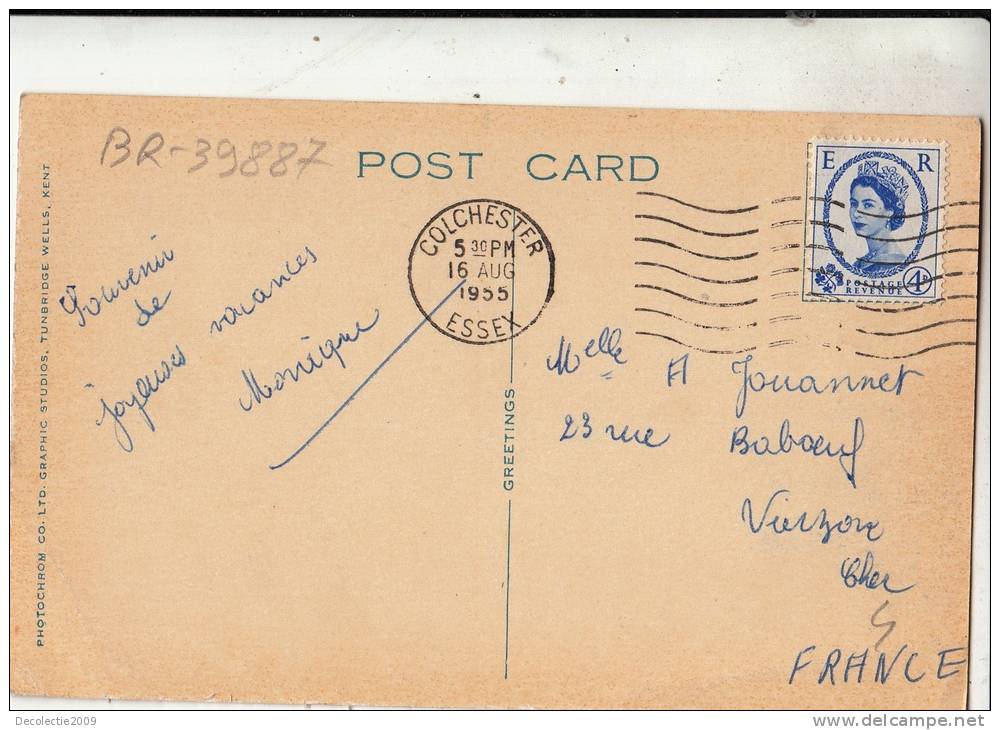 BR-39887
POST CARD
COLCHESTER
5 30 PM
16 AUG
1955
ESSEX
E R
POSTAGE
REVENUE
4D
Souvenir
de
joyeuses vacances
Monique
GREETINGS
Melle A Jouannet
23 rue Babœuf
Vierzon
Cher
FRANCE
PHOTOCHROM CO. LTD. GRAPHIC STUDIOS, TUNBRIDGE WELLS, KENT
Decolectie2009
delcampe.net